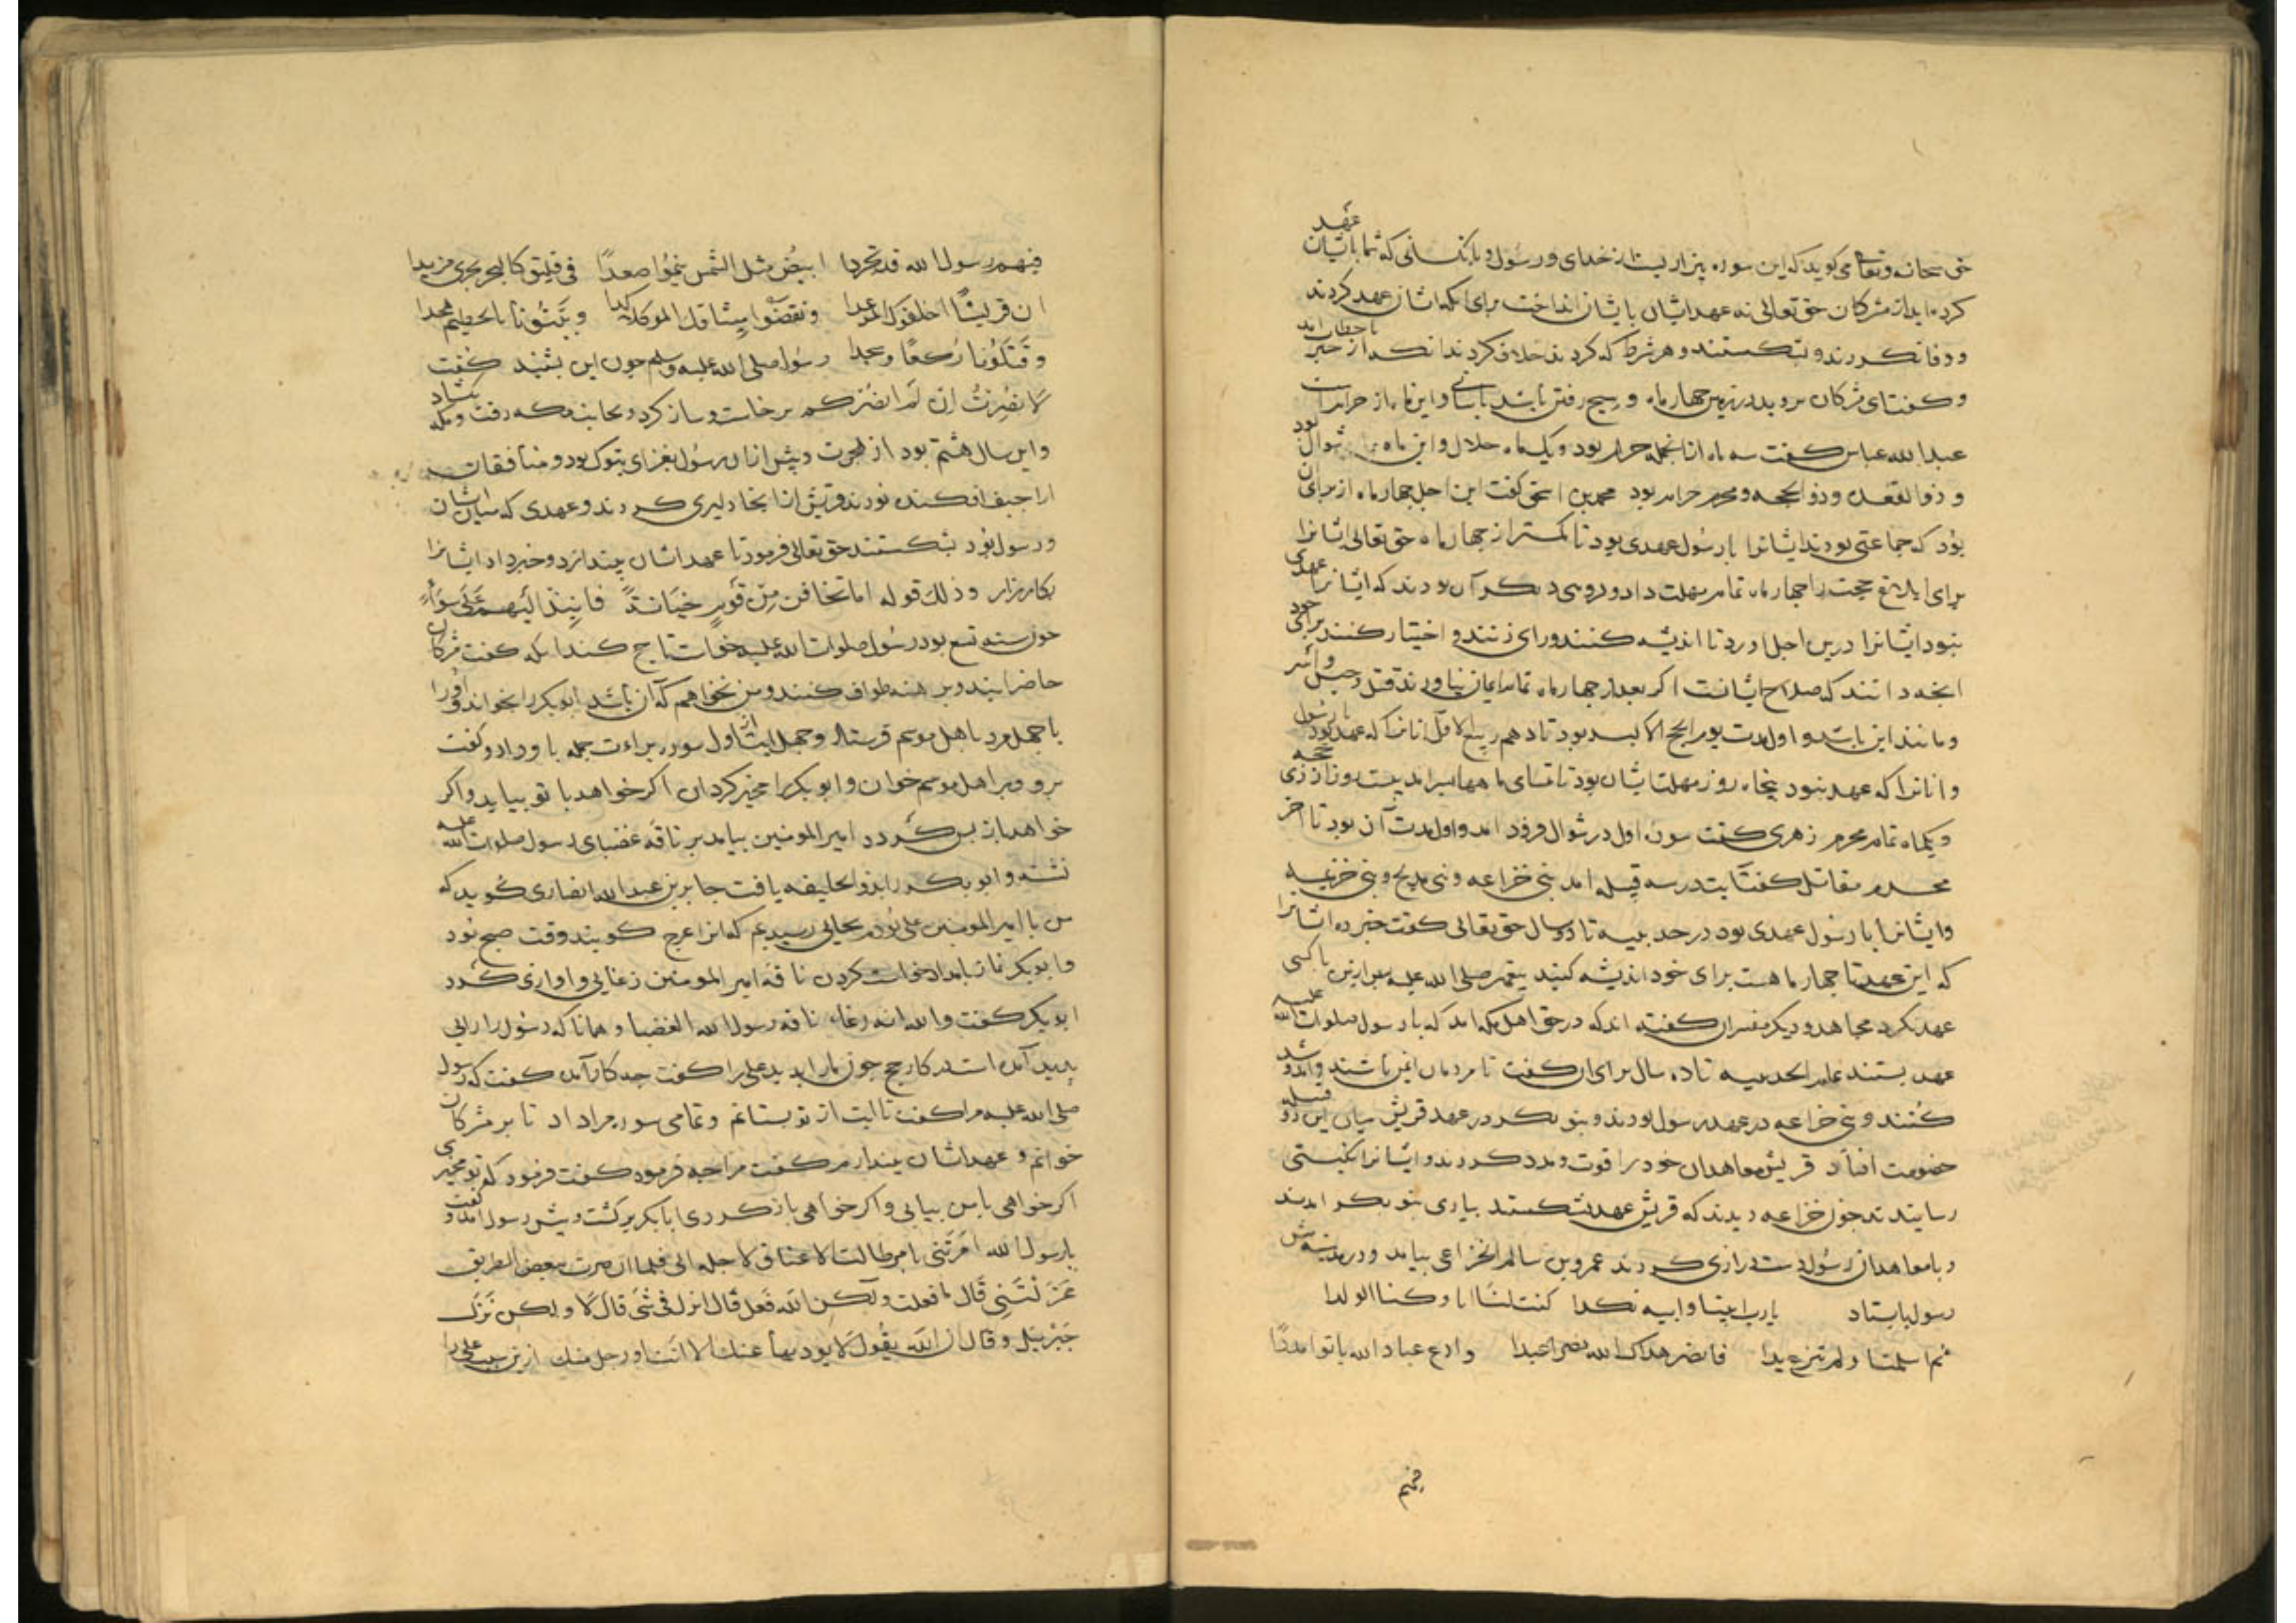 حق سبحانه وتعالی می‌کوید که این سوره بیزاریست از خدای ورسول و بانکسانی که شما با ایشان عهد
کرده‌اید از مشرکان حق تعالی نه عهد ایشان با یشان انداخت برای انکه ایشان عهد کردند
و وفا نکردند و بشکستند و هر شرط که کردند خلاف کردند انکه از خبر با خطاب امد
وکفت ای مشرکان بروید در زمین چهار ماه و سیح رفتن باشد باسانی و این ماه از حرامست
عبدالله عباس کفت سه ماه از انجمله حرام بود ویک ماه حلال واین ماه شوال بود
و ذوالقعده وذوالحجه ومحرم حرام بود محمدبن اسحق کفت این اجل چهار ماه از برای آن
بود که جماعتی بودند ایشانرا با رسول عهدی بود تا کمتر از چهار ماه حق تعالی ایشانرا
برای ابلاغ حجت را چهار ماه تمام مهلت داد و کروهی دیکر آن بودند که ایشانرا عهدی
نبود ایشانرا درین اجل اورد تا اندیشه کنند ورای زنند و اختیار کنند برای خود
انچه دانند که صلاح ایشانست اکر بعد از چهار ماه تمام ایمان نیاورند قتل وحبس واسر
ومانند این باشد و اول مدت یوم الحج الاکبر بود تا دهم ربیع الاول انانرا که عهد بود با رسول
وانانرا که عهد نبود پنجاه روز مهلت ایشان بود تا انسلاخ ماهها سرامد بیست روز از ذی حجه
ویکماه تمام محرم زهری کفت سوره اول در شوال فرود امد واول مدت آن بود تا اخر
محرم مقاتل کفت آیت در سه قبیله امد بنی خزاعه وبنی مدلج وبنی خزیمه
وایشانرا با رسول عهدی بود در حدیبیه تا دو سال حق تعالی کفت خبر ده ایشانرا
که این عهد تا چهار ماهست برای خود اندیشه کنید پیغمبر صلی الله علیه پس ازین با کسی
عهد نکرد مجاهد ودیکر مفسران کفته‌اند که در حق اهل مکه امد که با رسول صلوات الله علیه
عهد بستند عام الحدیبیه تا ده سال برای ان کفت تا مردمان ایمن باشند وامد وشد
کنند وبنی خزاعه در عهد رسول بودند وبنو بکر در عهد قریش میان این دو قبیله
خصومت افتاد قریش معاهدان خود را قوت ومدد کردند وایشانرا نکبتی
رسانیدند چون خزاعه دیدند که قریش عهد بشکستند بیاری بنو بکر امدند
وبا معاهدان رسول دست درازی کردند عمرو بن سالم الخزاعی بیامد ودر مدینه پیش
رسول بایستاد یا رب ابینا وابیه تکدا کنت لنا ابا وکنا الولدا
ثم اسلمنا ولم ننزع یدا فانصر هداک الله نصرا عبدا وادع عباد الله یاتوا مددا
فیهم
فیهم رسول الله قد تجردا ابیض مثل الشمس ینموا صعدا فی فیلق کالبحر یجری مزبدا
ان قریشا اخلفوک الموعدا ونقضوا میثاقک الموکدا وبیتونا بالحطیم هجدا
وقتلونا رکعا وسجدا رسول صلی الله علیه وسلم چون این بشنید کفت
لا نصرت ان لم انصرکم برخاست وساز کرد وبجانب مکه رفت ومکه بکشاد
واین سال هشتم بود از هجرت وپیش ازان رسول بغزای تبوک بود ومنافقان
اراجیف افکنده بودند وقریش از انجا دلیری کردند وعهدی که میان ایشان
ورسول بود بشکستند حق تعالی فرمود تا عهد ایشان بیندازد وخبر داد ایشانرا
بکارزار وذلک قوله اما تخافن من قوم خیانة فانبذ الیهم علی سواء
چون سنه تسع بود رسول صلوات الله علیه خواست تا حج کند انکه کفت مشرکان
حاضر ایند وبرهنه طواف کنند ومن نخواهم که آن باشد ابوبکر را بخواند واورا
با چهل مرد باهل موسم فرستاد وچهل آیت از اول سوره براءت جمله باو داد وکفت
برو وبر اهل موسم خوان وابوبکر را مخیر کردان اکر خواهد با تو بیاید واکر
خواهد باز پس کردد امیر المومنین بیامد بر ناقه غضبای رسول صلوات الله علیه
نشسته وابوبکر را بذوالحلیفه یافت جابر بن عبدالله انصاری کوید که
من با امیر المومنین علی بودم بجایی رسیدیم که انرا عرج کویند وقت صبح بود
وابوبکر نماز بامداد خواست کردن ناقه امیر المومنین رغایی واوازی کرد
ابوبکر کفت والله انه رغاء ناقه رسول الله الغضبا وهمانا که رسول را رایی
پدید آمده است در کار حج چون مارا بدید علی را کفت چه کار آمده کفت که رسول
صلی الله علیه مرا کفت تا ایت از تو بستانم وتمامی سوره مرا داد تا بر مشرکان
خوانم وعهد ایشان بیندازم کفت مرا چه فرمود کفت فرمود که تو مخیری
اکر خواهی با من بیایی واکر خواهی باز کردی ابابکر برکشت وپیش رسول امد وکفت
یا رسول الله امرتنی بامر طالت الاعناق لاجله الی فلما ان صرت ببعض الطریق
عزلتنی قال ما فعلت ولکن الله فعل قال انزل فی شی قال لا ولکن نزل
جبرئیل وقال ان الله یقول لا یودیها عنک الا انت او رجل منک ازین سبب علی را